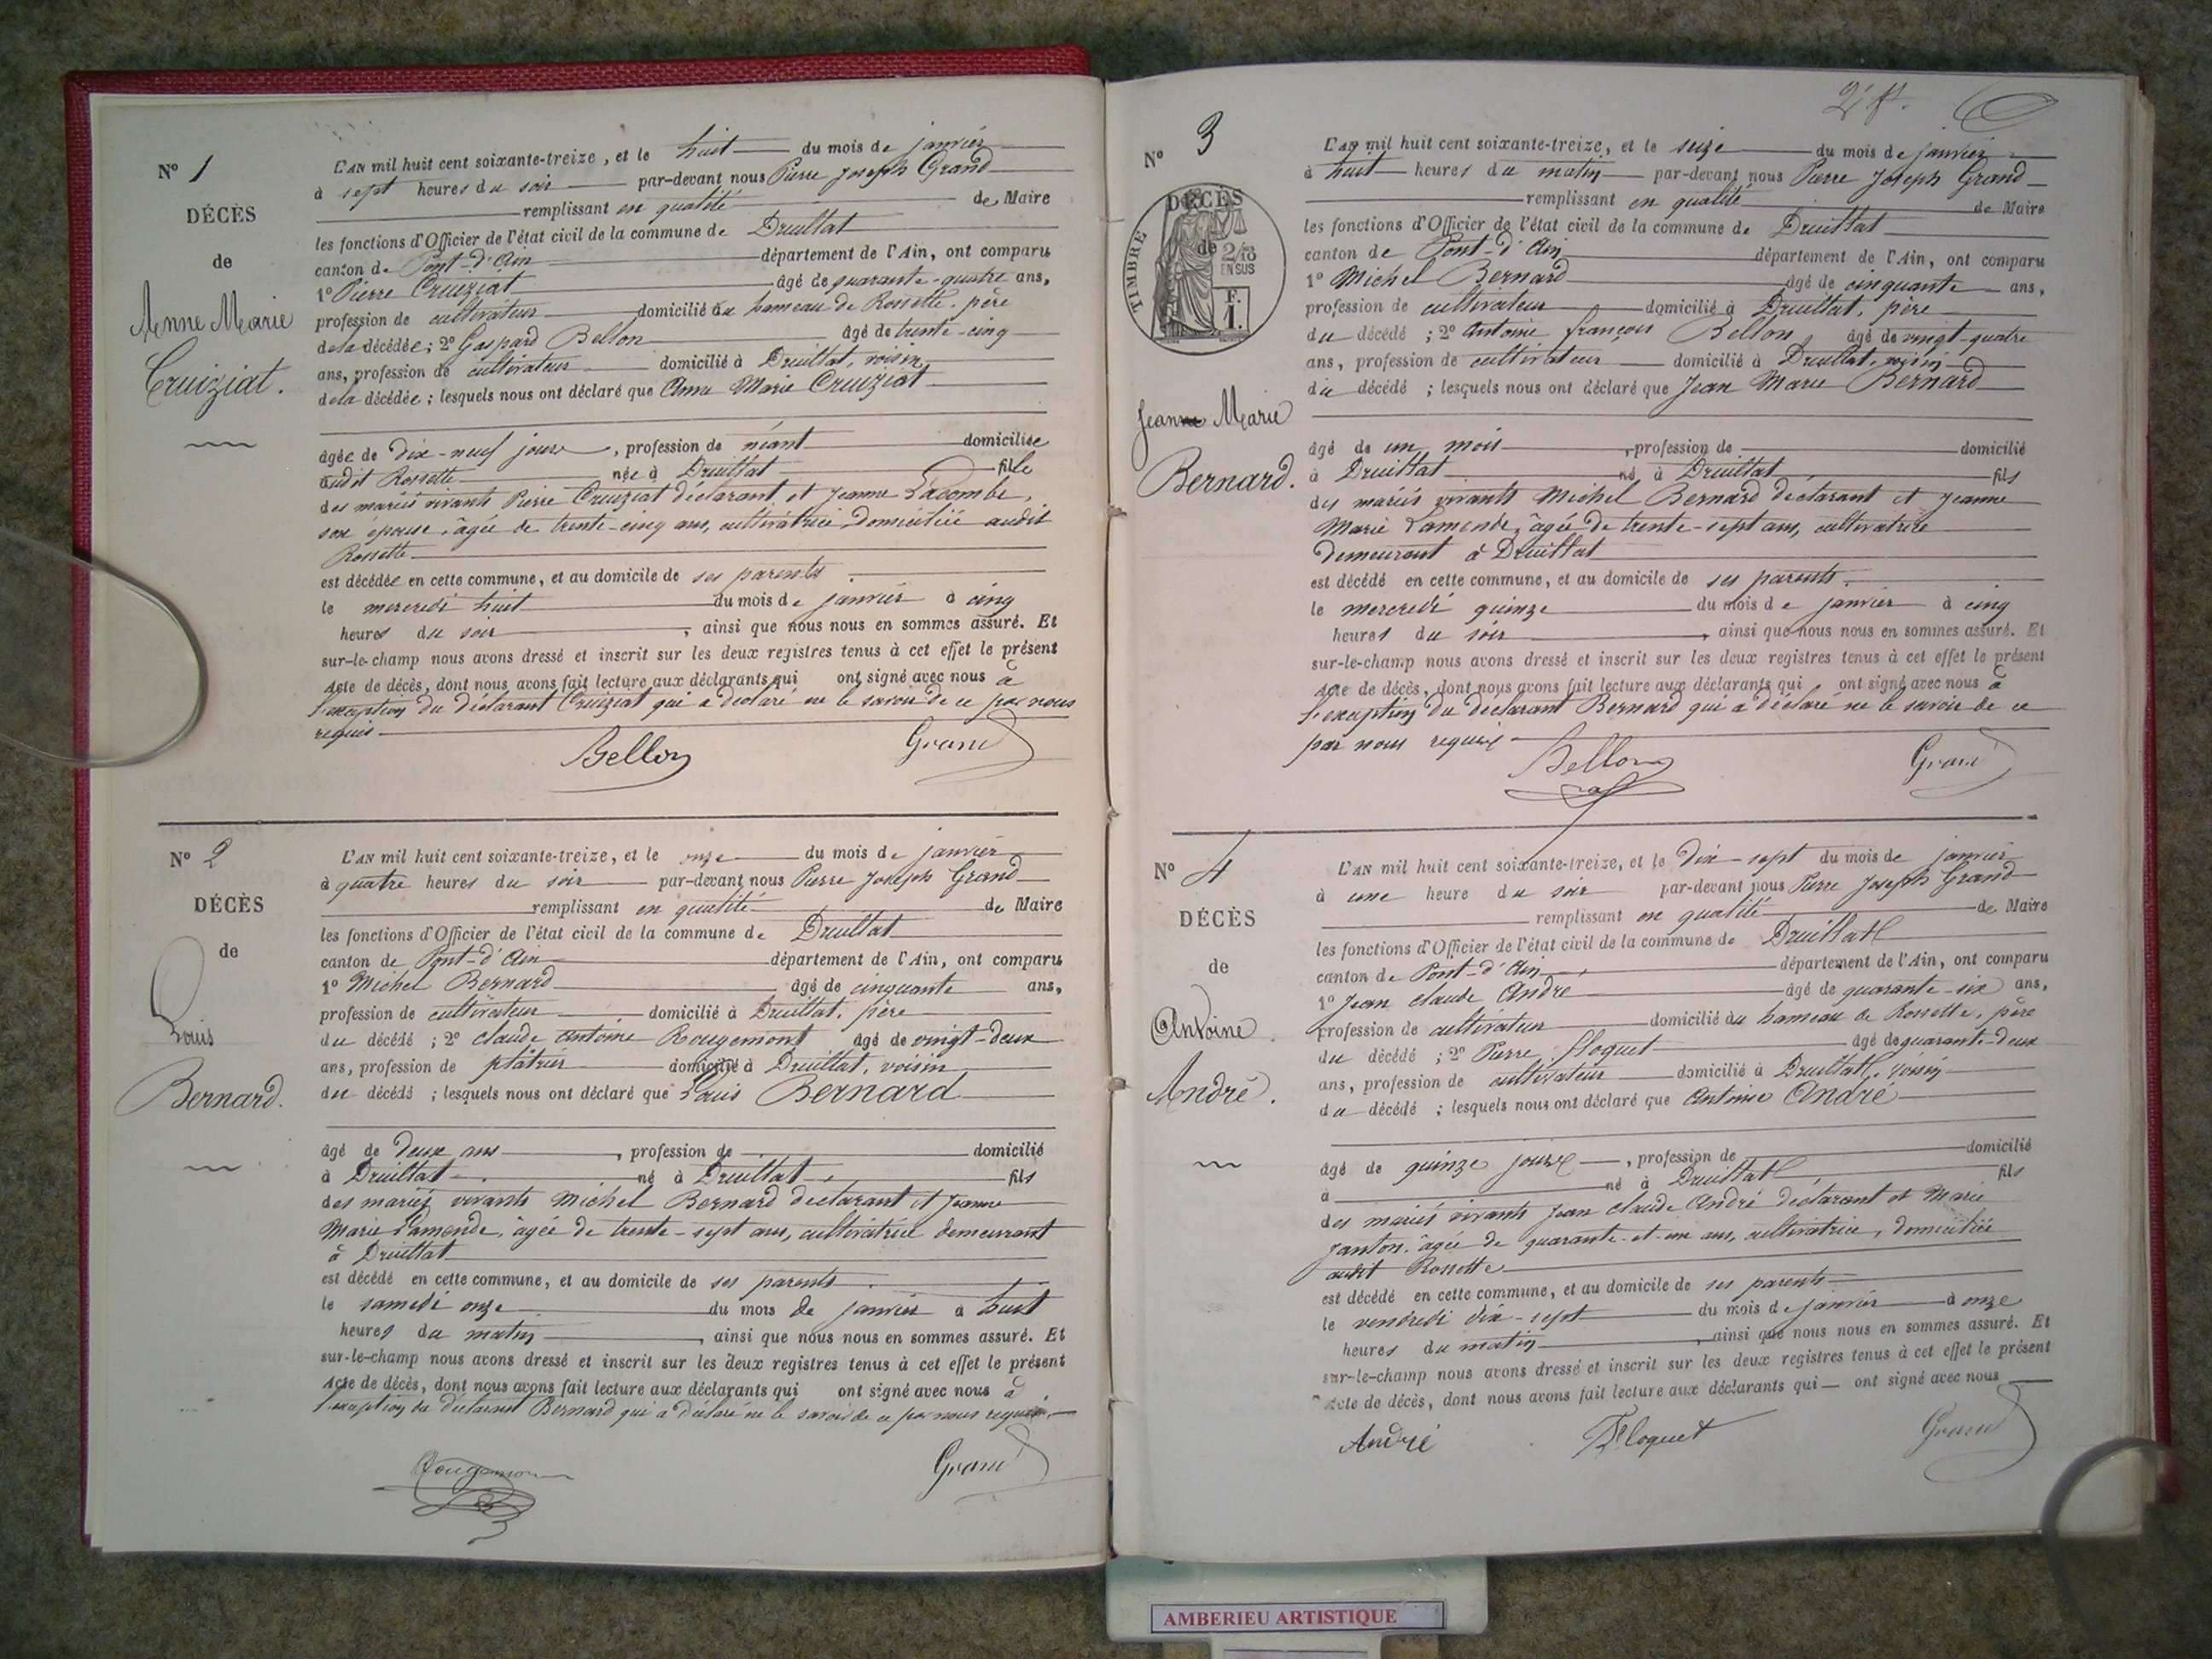 Nº 1
DÉCÈS
de
Anne Marie
Cruiziat.
L'AN mil huit cent soixante-treize, et le huit du mois de janvier
à sept heures du soir par-devant nous Pierre Joseph Grand
remplissant en qualité de Maire
les fonctions d'Officier de l'état civil de la commune de Druillat
canton de Pont-d'Ain département de l'Ain, ont comparu
1º Pierre Cruiziat âgé de quarante-quatre ans,
profession de cultivateur domicilié au hameau de Rossette, père
de la décédée; 2º Gaspard Bellon âgé de trente-cinq
ans, profession de cultivateur domicilié à Druillat, voisin
de la décédée; lesquels nous ont déclaré que Anne Marie Cruiziat
âgée de dix-neuf jours, profession de néant domiciliée
audit Rossette née à Druillat fille
des mariés vivants Pierre Cruiziat déclarant et Jeanne Lacombe,
son épouse, âgée de trente-cinq ans, cultivatrice domiciliée audit
Rossette
est décédée en cette commune, et au domicile de ses parents.
le mercredi huit du mois de janvier à cinq
heures du soir, ainsi que nous nous en sommes assuré. Et
sur-le-champ nous avons dressé et inscrit sur les deux registres tenus à cet effet le présent
Acte de décès, dont nous avons fait lecture aux déclarants qui ont signé avec nous à
l'exception du déclarant Cruiziat qui a déclaré ne le savoir de ce par nous
requis
Bellon Grand
Nº 2
DÉCÈS
de
Louis
Bernard.
L'AN mil huit cent soixante-treize, et le onze du mois de janvier
à quatre heures du soir par-devant nous Pierre Joseph Grand
remplissant en qualité de Maire
les fonctions d'Officier de l'état civil de la commune de Druillat
canton de Pont-d'Ain département de l'Ain, ont comparu
1º Michel Bernard âgé de cinquante ans,
profession de cultivateur domicilié à Druillat, père
du décédé; 2º Claude Antoine Rougemont âgé de vingt-deux
ans, profession de plâtrier domicilié à Druillat, voisin
du décédé; lesquels nous ont déclaré que Louis Bernard
âgé de deux ans, profession de domicilié
à Druillat né à Druillat fils
des mariés vivants Michel Bernard déclarant et Jeanne
Marie Lamende, âgée de trente-sept ans, cultivatrice demeurant
à Druillat
est décédé en cette commune, et au domicile de ses parents.
le samedi onze du mois de janvier à huit
heures du matin, ainsi que nous nous en sommes assuré. Et
sur-le-champ nous avons dressé et inscrit sur les deux registres tenus à cet effet le présent
Acte de décès, dont nous avons fait lecture aux déclarants qui ont signé avec nous à
l'exception du déclarant Bernard qui a déclaré ne le savoir de ce par nous requis
Rougemont Grand
Nº 3
DÉCÈS
de
TIMBRE
2/10
EN SUS
F.
1.
Jeanne Marie
Bernard.
L'AN mil huit cent soixante-treize, et le seize du mois de janvier
à huit heures du matin par-devant nous Pierre Joseph Grand
remplissant en qualité de Maire
les fonctions d'Officier de l'état civil de la commune de Druillat
canton de Pont-d'Ain département de l'Ain, ont comparu
1º Michel Bernard âgé de cinquante ans,
profession de cultivateur domicilié à Druillat, père
du décédé; 2º Antoine françois Bellon âgé de vingt-quatre
ans, profession de cultivateur domicilié à Druillat, voisin
du décédé; lesquels nous ont déclaré que Jean Marie Bernard
âgé de un mois, profession de domicilié
à Druillat né à Druillat fils
des mariés vivants Michel Bernard déclarant et Jeanne
Marie Lamende, âgée de trente-sept ans, cultivatrice
demeurant à Druillat
est décédé en cette commune, et au domicile de ses parents.
le mercredi quinze du mois de janvier à cinq
heures du soir, ainsi que nous nous en sommes assuré. Et
sur-le-champ nous avons dressé et inscrit sur les deux registres tenus à cet effet le présent
Acte de décès, dont nous avons fait lecture aux déclarants qui ont signé avec nous à
l'exception du déclarant Bernard qui a déclaré ne le savoir de ce
par nous requis
Bellon Grand
Nº 4
DÉCÈS
de
Antoine
André.
L'AN mil huit cent soixante-treize, et le dix-sept du mois de janvier
à une heure du soir par-devant nous Pierre Joseph Grand
remplissant en qualité de Maire
les fonctions d'Officier de l'état civil de la commune de Druillat
canton de Pont-d'Ain département de l'Ain, ont comparu
1º Jean Claude André âgé de quarante-six ans,
profession de cultivateur domicilié au hameau de Rossette, père
du décédé; 2º Pierre floquet âgé de quarante-deux
ans, profession de cultivateur domicilié à Druillat, voisin
du décédé; lesquels nous ont déclaré que Antoine André
âgé de quinze jours, profession de domicilié
à né à Druillat fils
des mariés vivants Jean Claude André déclarant et Marie
Janton, âgée de quarante-et-un ans, cultivatrice, domiciliée
audit Rossette
est décédé en cette commune, et au domicile de ses parents
le vendredi dix-sept du mois de janvier à onze
heures du matin, ainsi que nous nous en sommes assuré. Et
sur-le-champ nous avons dressé et inscrit sur les deux registres tenus à cet effet le présent
Acte de décès, dont nous avons fait lecture aux déclarants qui ont signé avec nous
André Floquet Grand
AMBERIEU ARTISTIQUE